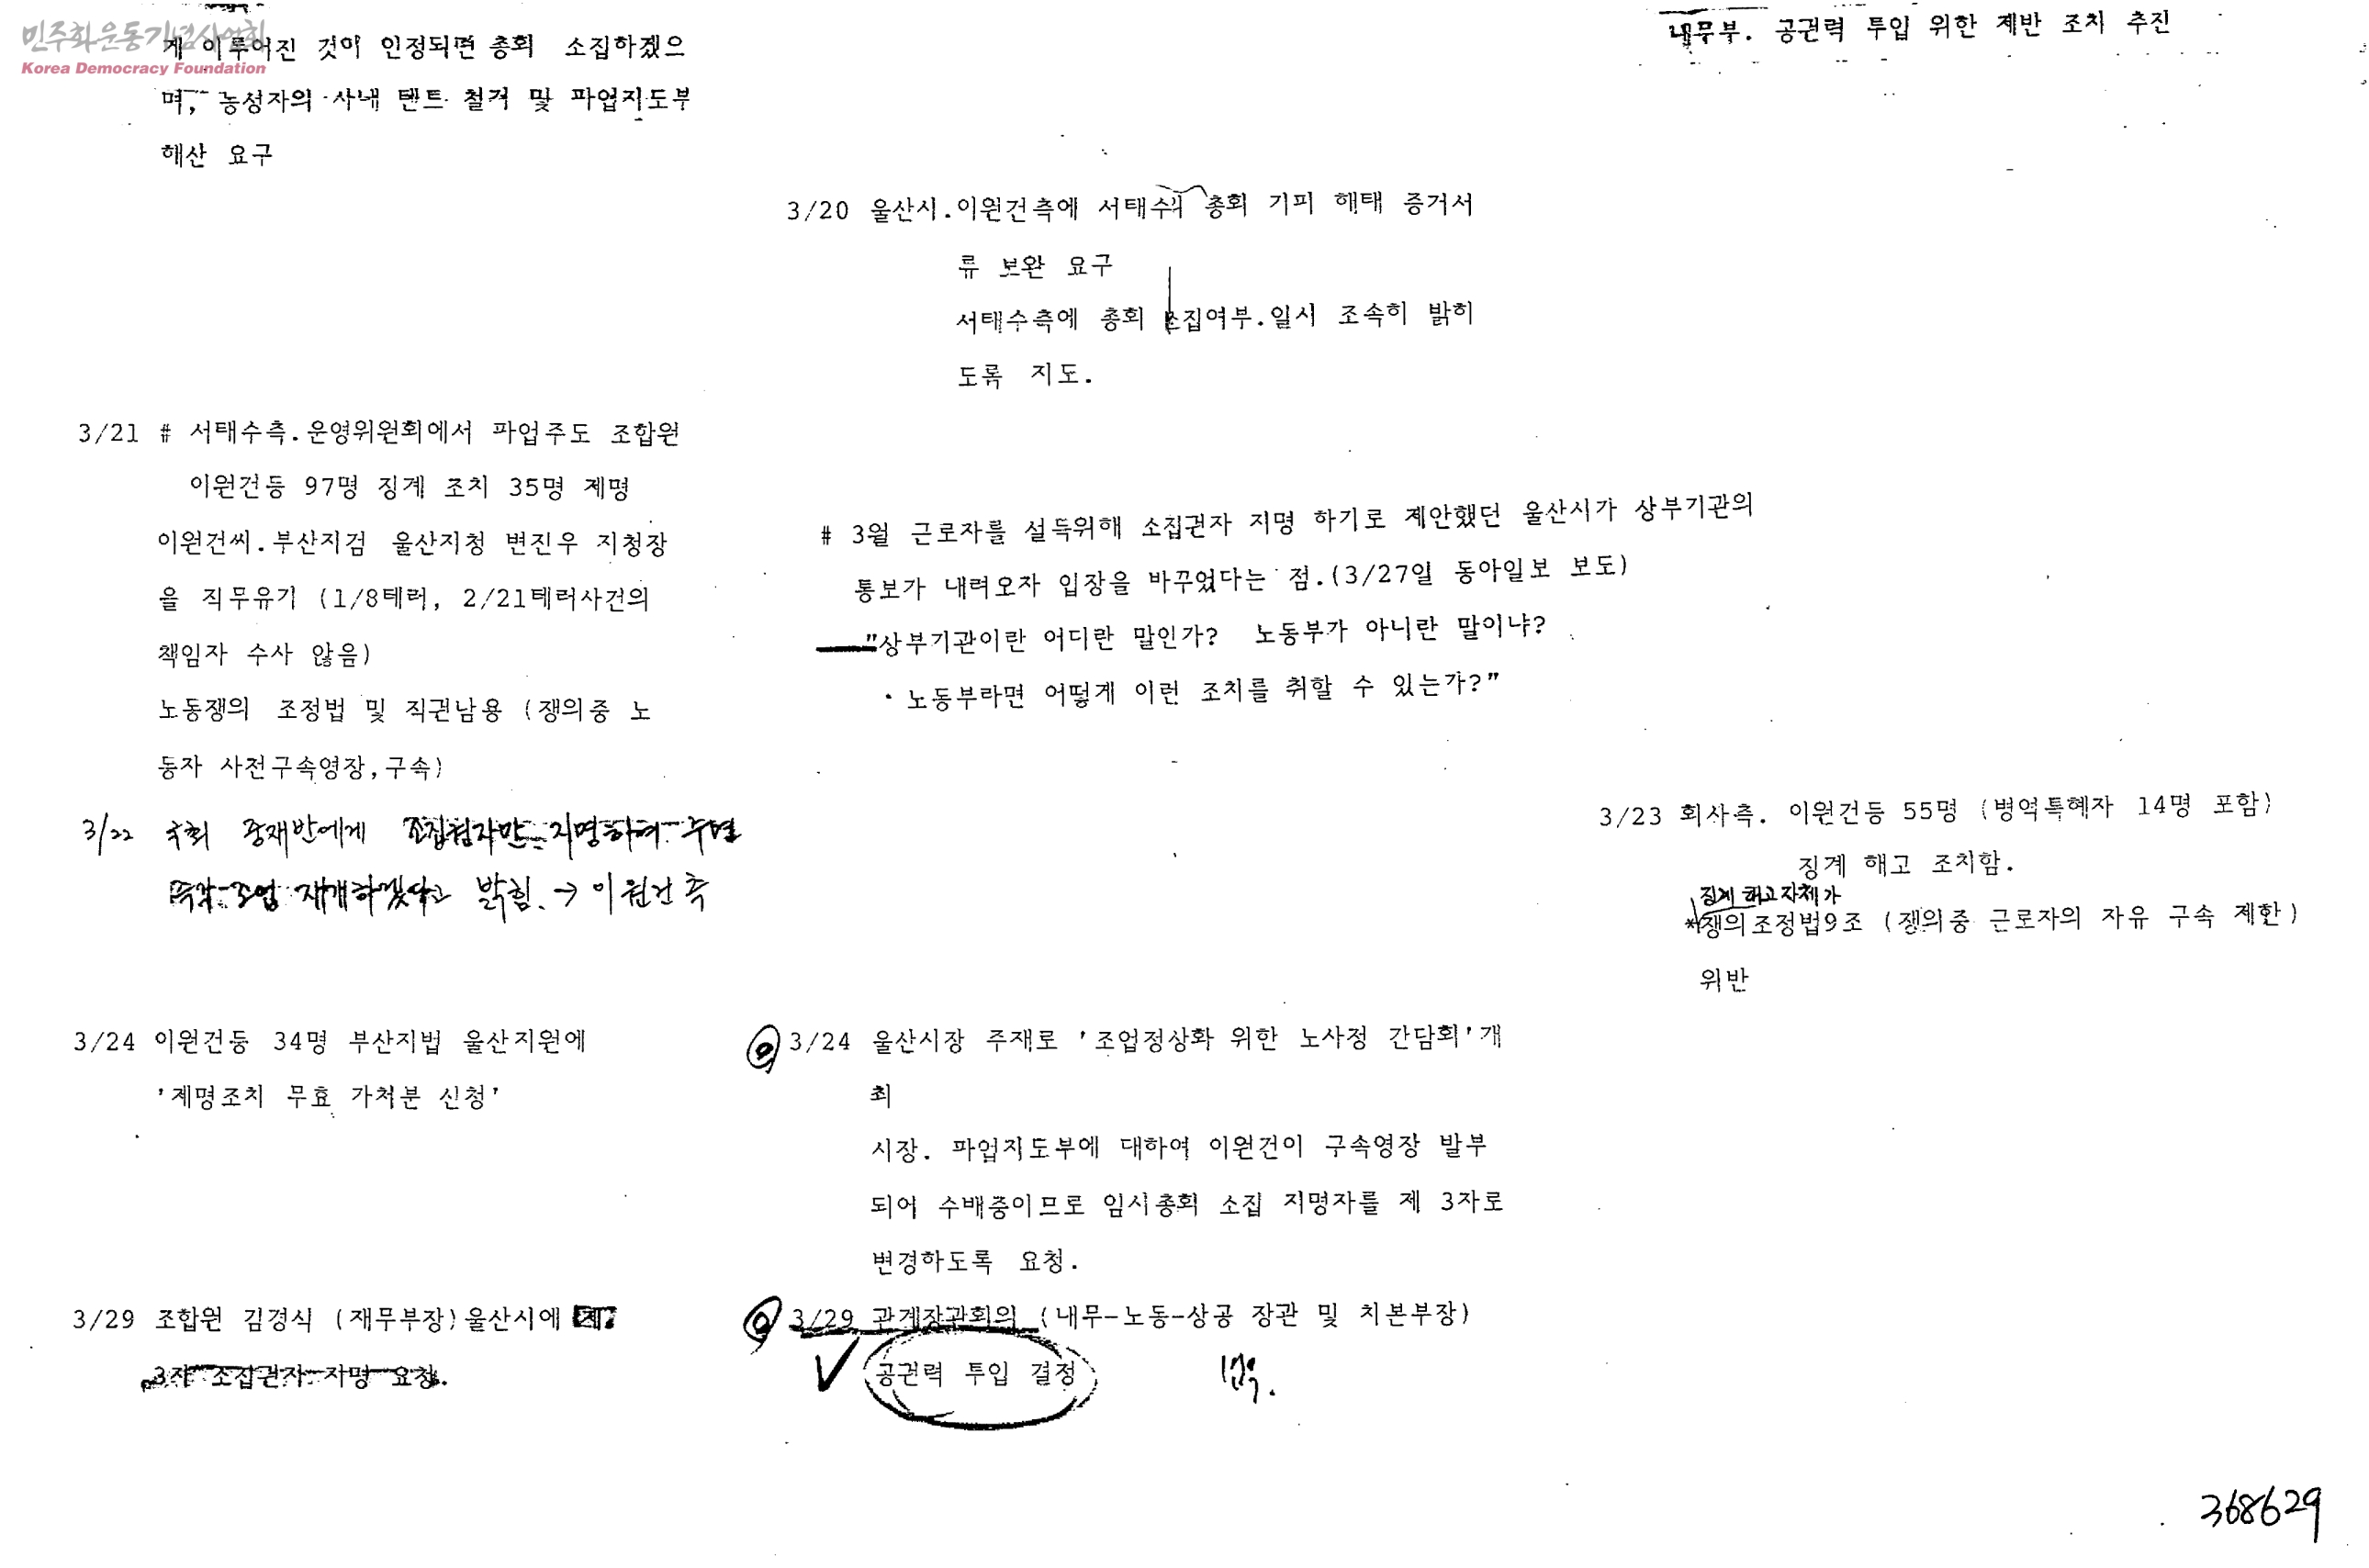 민주화운동기념사업회
Korea Democracy Foundation
게 이루어진 것이 인정되면 총회 소집하겠으
며, 농성자의 사내 텐트 철거 및 파업지도부
해산 요구
내무부. 공권력 투입 위한 제반 조치 추진
3/20 울산시.이원건측에 서태수의 총회 기피 해태 증거서
류 보완 요구
서태수측에 총회 소집여부.일시 조속히 밝히
도록 지도.
3/21 # 서태수측.운영위원회에서 파업주도 조합원
이원건등 97명 징계 조치 35명 제명
이원건씨.부산지검 울산지청 변진우 지청장
을 직무유기 (1/8테러, 2/21테러사건의
책임자 수사 않음)
노동쟁의 조정법 및 직권남용 (쟁의중 노
동자 사전구속영장,구속)
# 3월 근로자를 설득위해 소집권자 지명 하기로 제안했던 울산시가 상부기관의
통보가 내려오자 입장을 바꾸었다는 점.(3/27일 동아일보 보도)
"상부기관이란 어디란 말인가? 노동부가 아니란 말이냐?
노동부라면 어떻게 이런 조치를 취할 수 있는가?"
3/22 국회 중재반에게 지명하여 주면
즉각 조업 재개하겠다고 밝힘. → 이원건 측
3/23 회사측. 이원건등 55명 (병역특혜자 14명 포함)
징계 해고 조치함.
징계 해고 자체가
*쟁의조정법9조 (쟁의중 근로자의 자유 구속 제한)
위반
3/24 이원건등 34명 부산지법 울산지원에
'제명조치 무효 가처분 신청'
3/24 울산시장 주재로 '조업정상화 위한 노사정 간담회'개
최
시장. 파업지도부에 대하여 이원건이 구속영장 발부
되어 수배중이므로 임시총회 소집 지명자를 제 3자로
변경하도록 요청.
3/29 조합원 김경식 (재무부장)울산시에 제
3자 소집권자 지명 요청.
3/29 관계장관회의 (내무-노동-상공 장관 및 치본부장)
공권력 투입 결정
368629